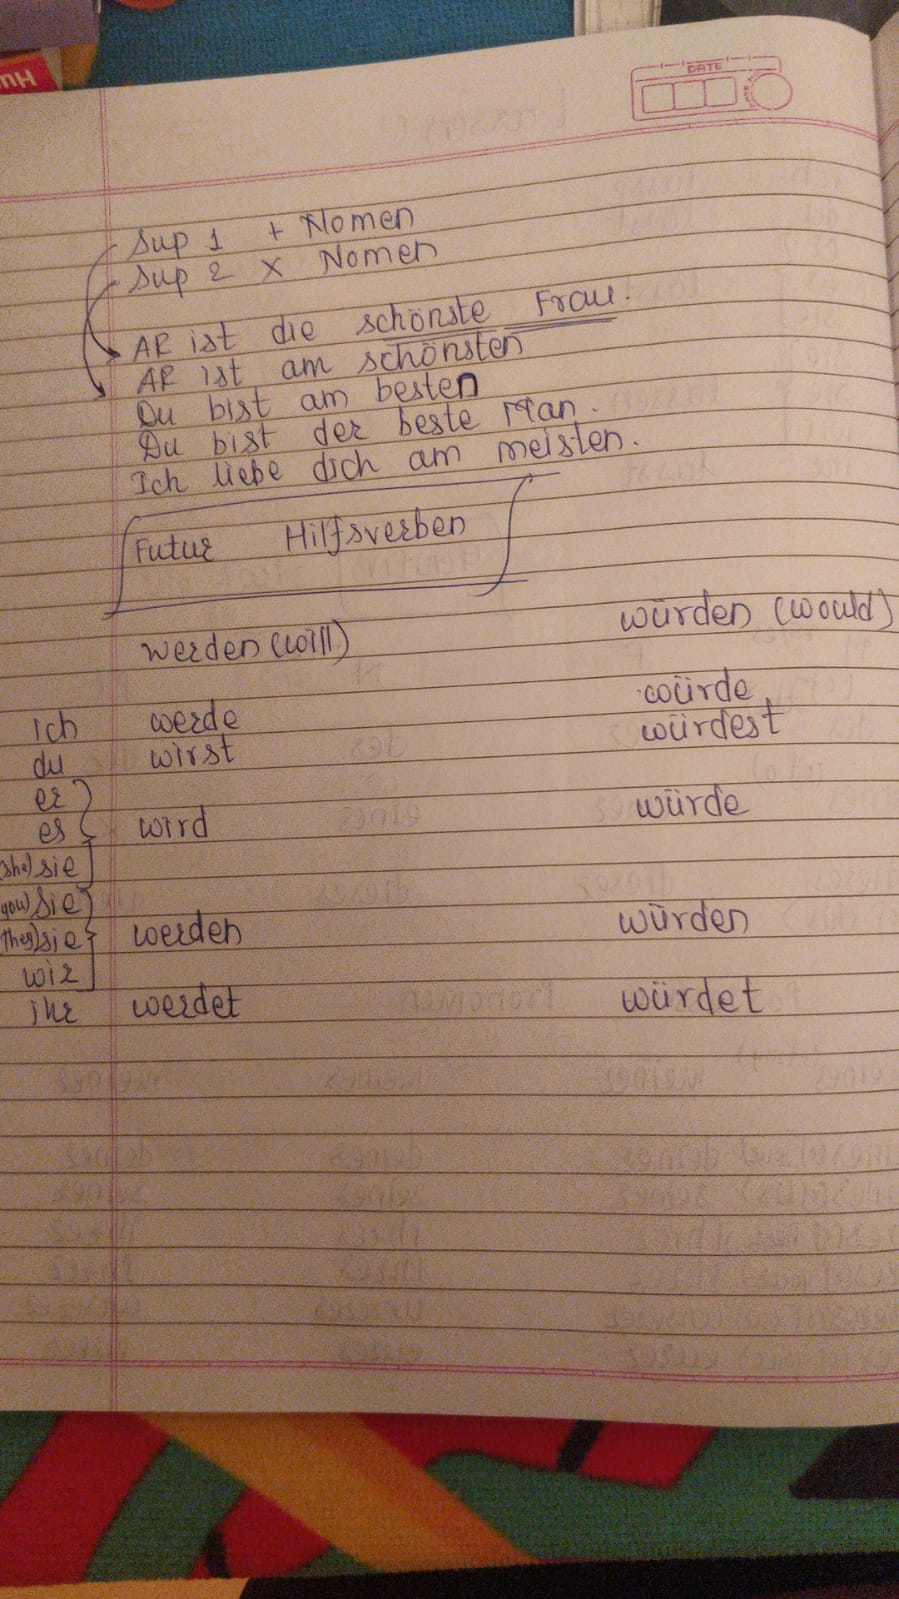 DATE
Sup 1 + Nomen
Sup 2 x Nomen
AR ist die schönste Frau.
AR ist am schönsten
Du bist am besten
Du bist der beste Man.
Ich liebe dich am meisten.
Futur Hilfsverben
werden (will) würden (would)
ich werde würde
du wirst würdest
er
es wird würde
(she) sie
(you) Sie
(They) sie werden würden
wir
ihr werdet würdet